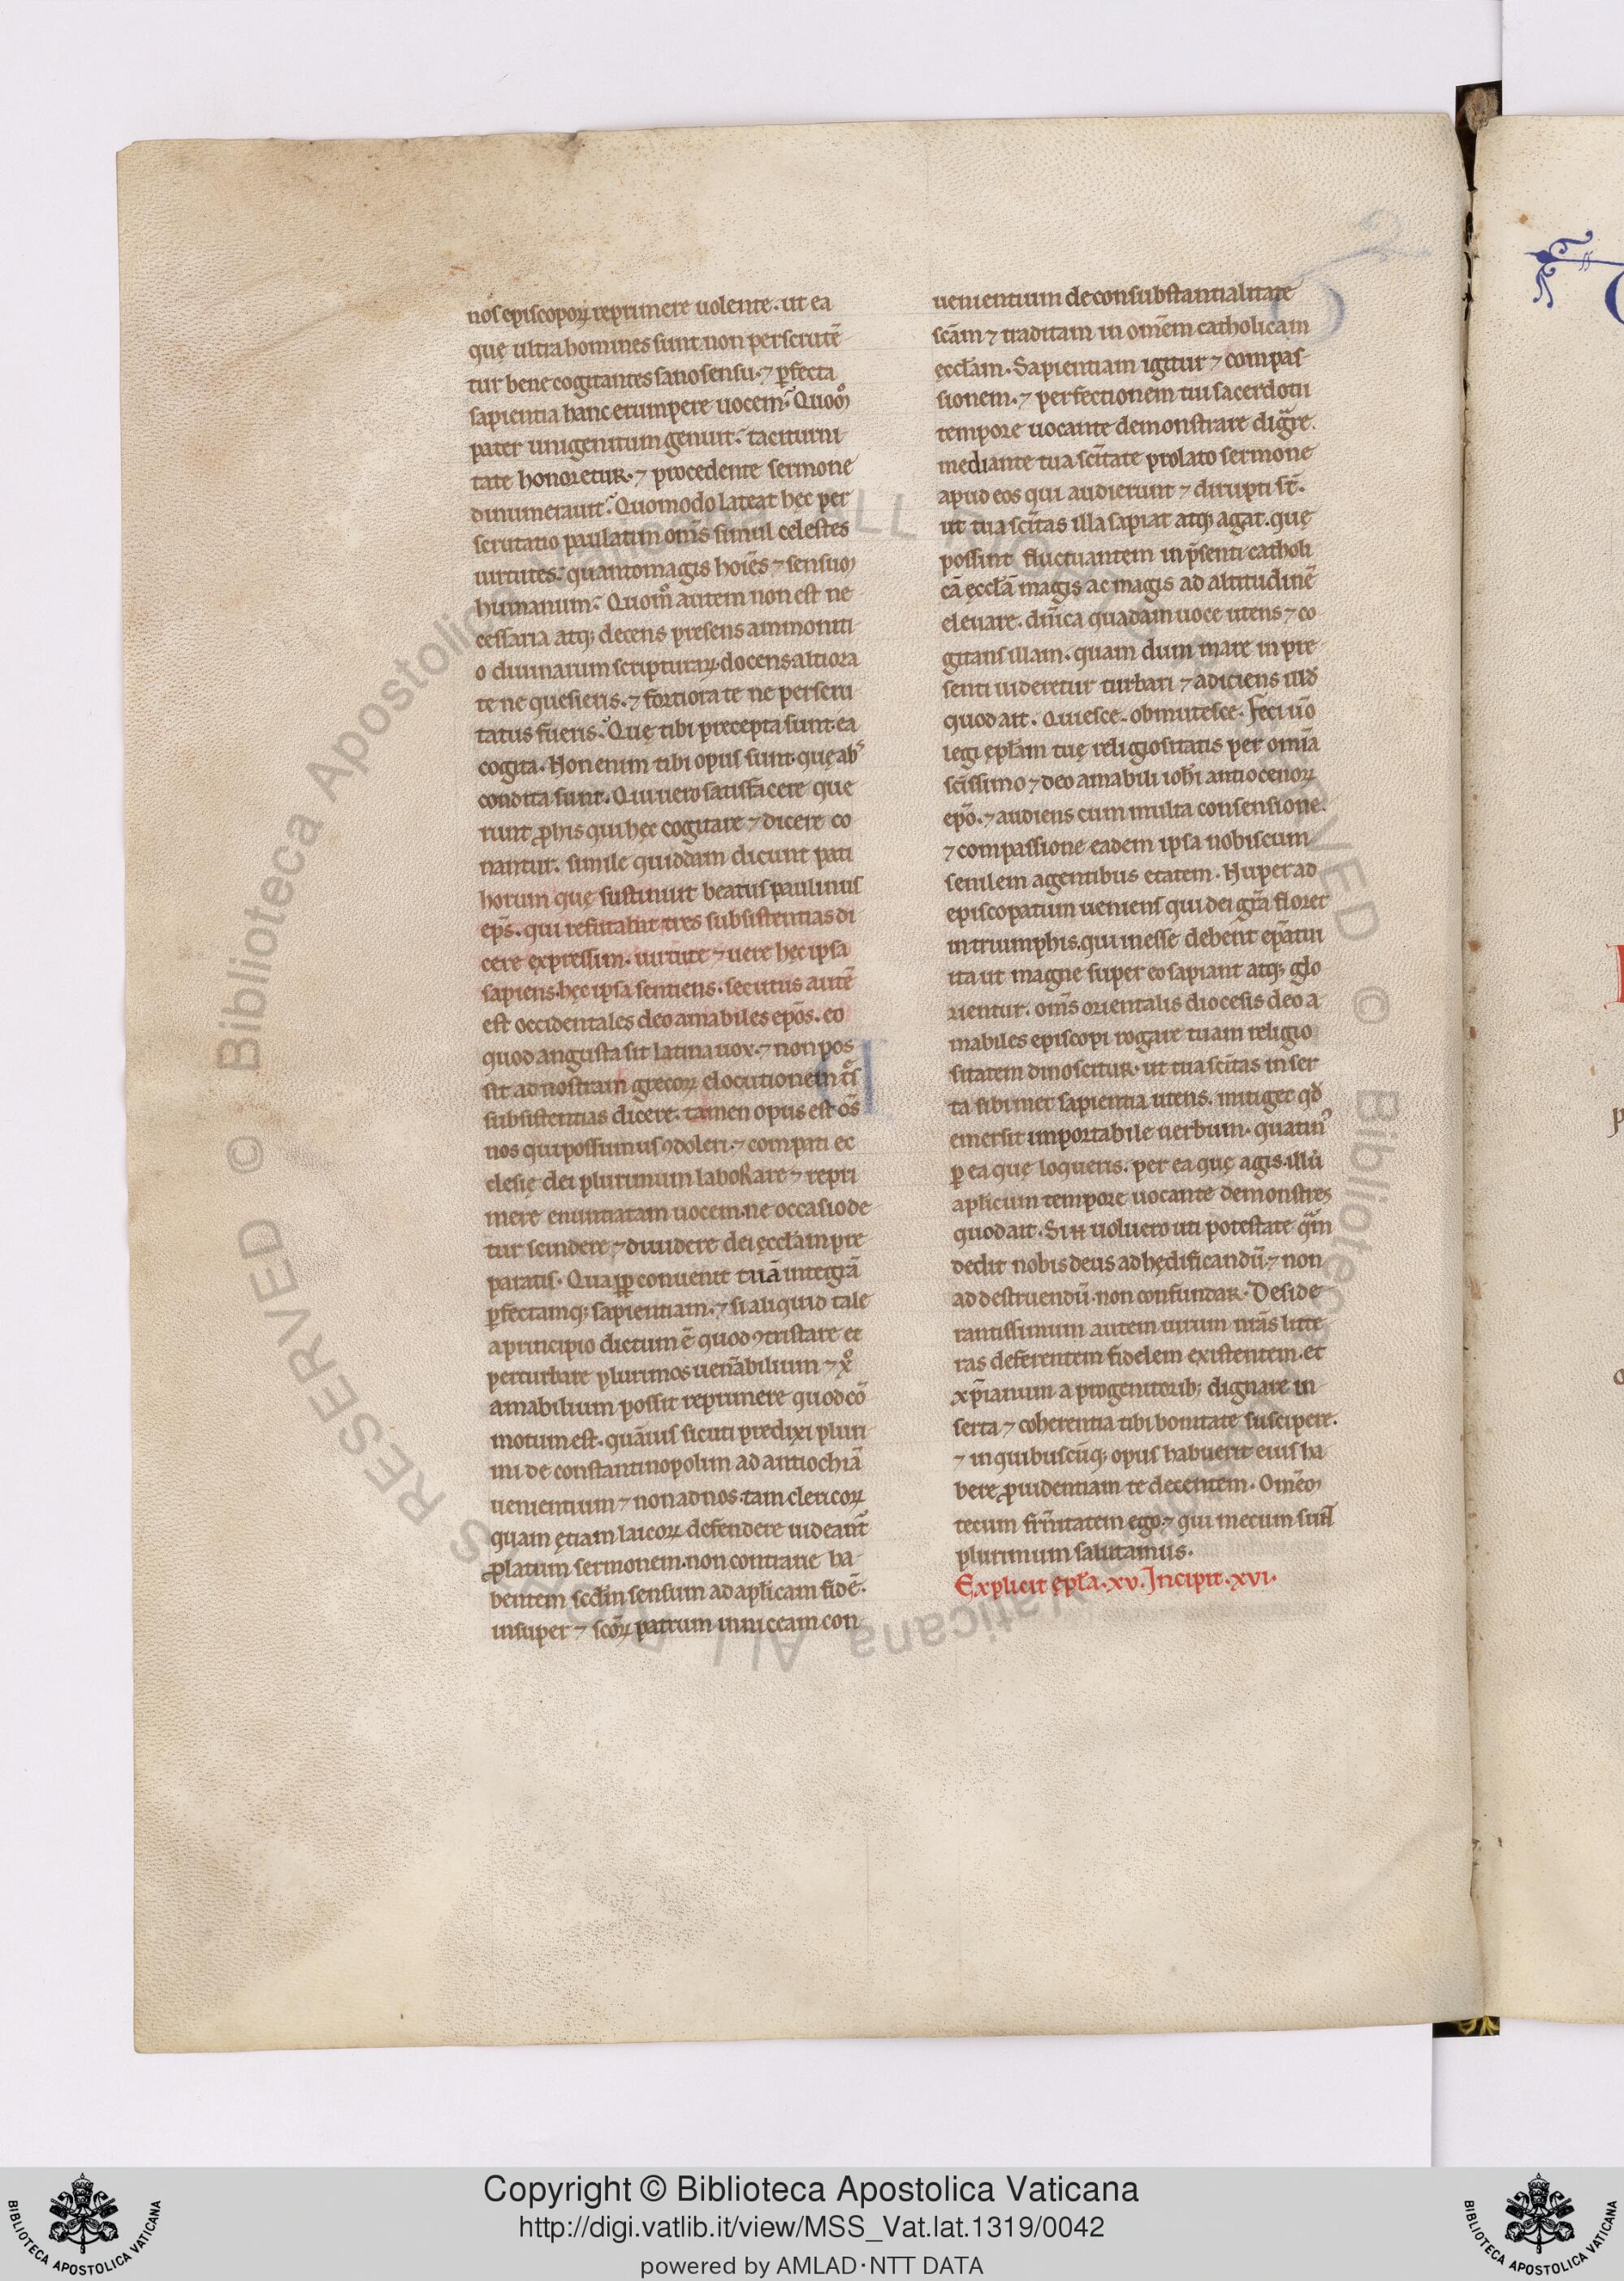 nos episcoporꝝ reprimere uolente. ut ea
quę ultra homines sunt non perscrutē
tur bene cogitantes sano sensu. ⁊ ꝑfecta
sapientia hanc erumpere uocem. Quoo͛
pater unigenitum genuit. taciturni
tate honoretur. ⁊ procedente sermone
dinumerauit. Quomodo lateat hęc per
scrutatio paulatim om̄s simul celestes
uirtutes. quanto magis hoīes ⁊ sensum
humanum. Quom̊ autem non est ne
cessaria atq; decens presens ammoniti
o diuinarum scripturaꝝ. docens altiora
te ne quesieris. ⁊ fortiora te ne perscru
tatus fueris. Quę tibi precepta sunt. ea
cogita. Non enim tibi opus sunt. quę abˢ
condita sunt. Qui uero satisfacere que
runt ꝓ his qui hęc cogitare ⁊ dicere co
nantur. simile quiddam dicunt pati
horum quę sustinuit beatus paulinus
ep̄s. qui refutabat tres subsistentias di
cere expressim. uirtute ⁊ uere hęc ipsa
sapiens. hęc ipsa sentiens. secutus autē
est occidentales deo amabiles ep̄os. eo
quod angusta sit latina uox. ⁊ non pos
sit ad nostram grecoꝝ elocutionem t͛s
subsistentias dicere. tamen opus est om̄s
nos qui possumus ꝯdoleri. ⁊ compati ec
clesię dei plurimum laborare ⁊ repri
mere enuntiatam uocem. ne occasio de
tur scindere ⁊ diuidere dei ęccl̄am pre
paratis. Qua ꝓꝑ conuenit tuā integrā
ꝑfectamq; sapientiam. ⁊ si aliquid tale
a principio dictum ē quod ꝯtristare et
perturbare plurimos uen̄abilium ⁊ xp̊
amabilium possit reprimere quod cō
motum est. quāuis sicuti predixi pluri
mi de constantinopolim ad antiochiā
uenientium ⁊ non ad nos. tam clericoꝝ
quam ętiam laicoꝝ defendere uideant᷑
ꝓlatum sermonem. non contrarie ha
bentem scd̄m sensum ad apl̄icam fidē.
insuper ⁊ sc̄oꝝ patrum in nicea con
uenientium de consubstantialitate
sc̄am ⁊ traditam in omēm catholicam
ęccl̄am. Sapientiam igitur ⁊ compas
sionem. ⁊ perfectionem tui sacerdotii
tempore uocante demonstrare digᷓre.
mediante tua scītate prolato sermone
apud eos qui audierunt ⁊ dirupti st̄.
ut tua scītas illa sapiat atq; agat. quę
possint fluctuantem in p̄senti catholi
cā ęccl̄ā magis ac magis ad altitudinē
eleuare. dn̄ica quadam uoce utens ⁊ co
gitans illam. quam dum mare in pre
senti uideretur turbari ⁊ adiciens illd̄
quod ait. Quiesce. obmutesce. Feci ū̊
legi epl̄am tuę religiositatis per omīa
scīssimo ⁊ deo amabili ioh̄i antiocenoꝝ
ep̄o. ⁊ audiens cum multa consensione.
⁊ compassione eadem ipsa nobiscum
senilem agentibus etatem. Nuper ad
episcopatum ueniens qui dei gr̄a floret
in triumphis. qui inesse debent ep̄atui
ita ut magne super eo sapiant atq; glo
rientur. om̄s orientalis diocesis deo a
mabiles episcopi rogare tuam religio
sitatem dinoscitur. ut tua scītas inser
ta sibimet sapientia utens. mitiget qd̄
emersit importabile uerbum. quatin᷒
ꝑ ea quę loqueris. per ea quę agis. illū
apl̄icum tempore uocante demonstres
quod ait. Si n̄ uoluero uti potestate qᷓm
dedit nobis deus ad hędificandū. ⁊ non
ad destruendū. non confundar. Deside
rantissimum autem uirum nr̄as litte
ras deferentem fidelem existentem. et
xp̄ianum a progenitorib; dignare in
serta ⁊ coherentia tibi bonitate suscipere.
⁊ in quibuscūq; opus habuerit eius ha
bere ꝓuidentiam te decentem. Om̄em
tecum fr̄nitatem ego. ⁊ qui mecum sunt
plurimum salutamus.
Explicit epl̄a .xv. Incipit .xvi.
Copyright © Biblioteca Apostolica Vaticana
http://digi.vatlib.it/view/MSS_Vat.lat.1319/0042
powered by AMLAD·NTT DATA
BIBLIOTECA APOSTOLICA VATICANA
BIBLIOTECA APOSTOLICA VATICANA